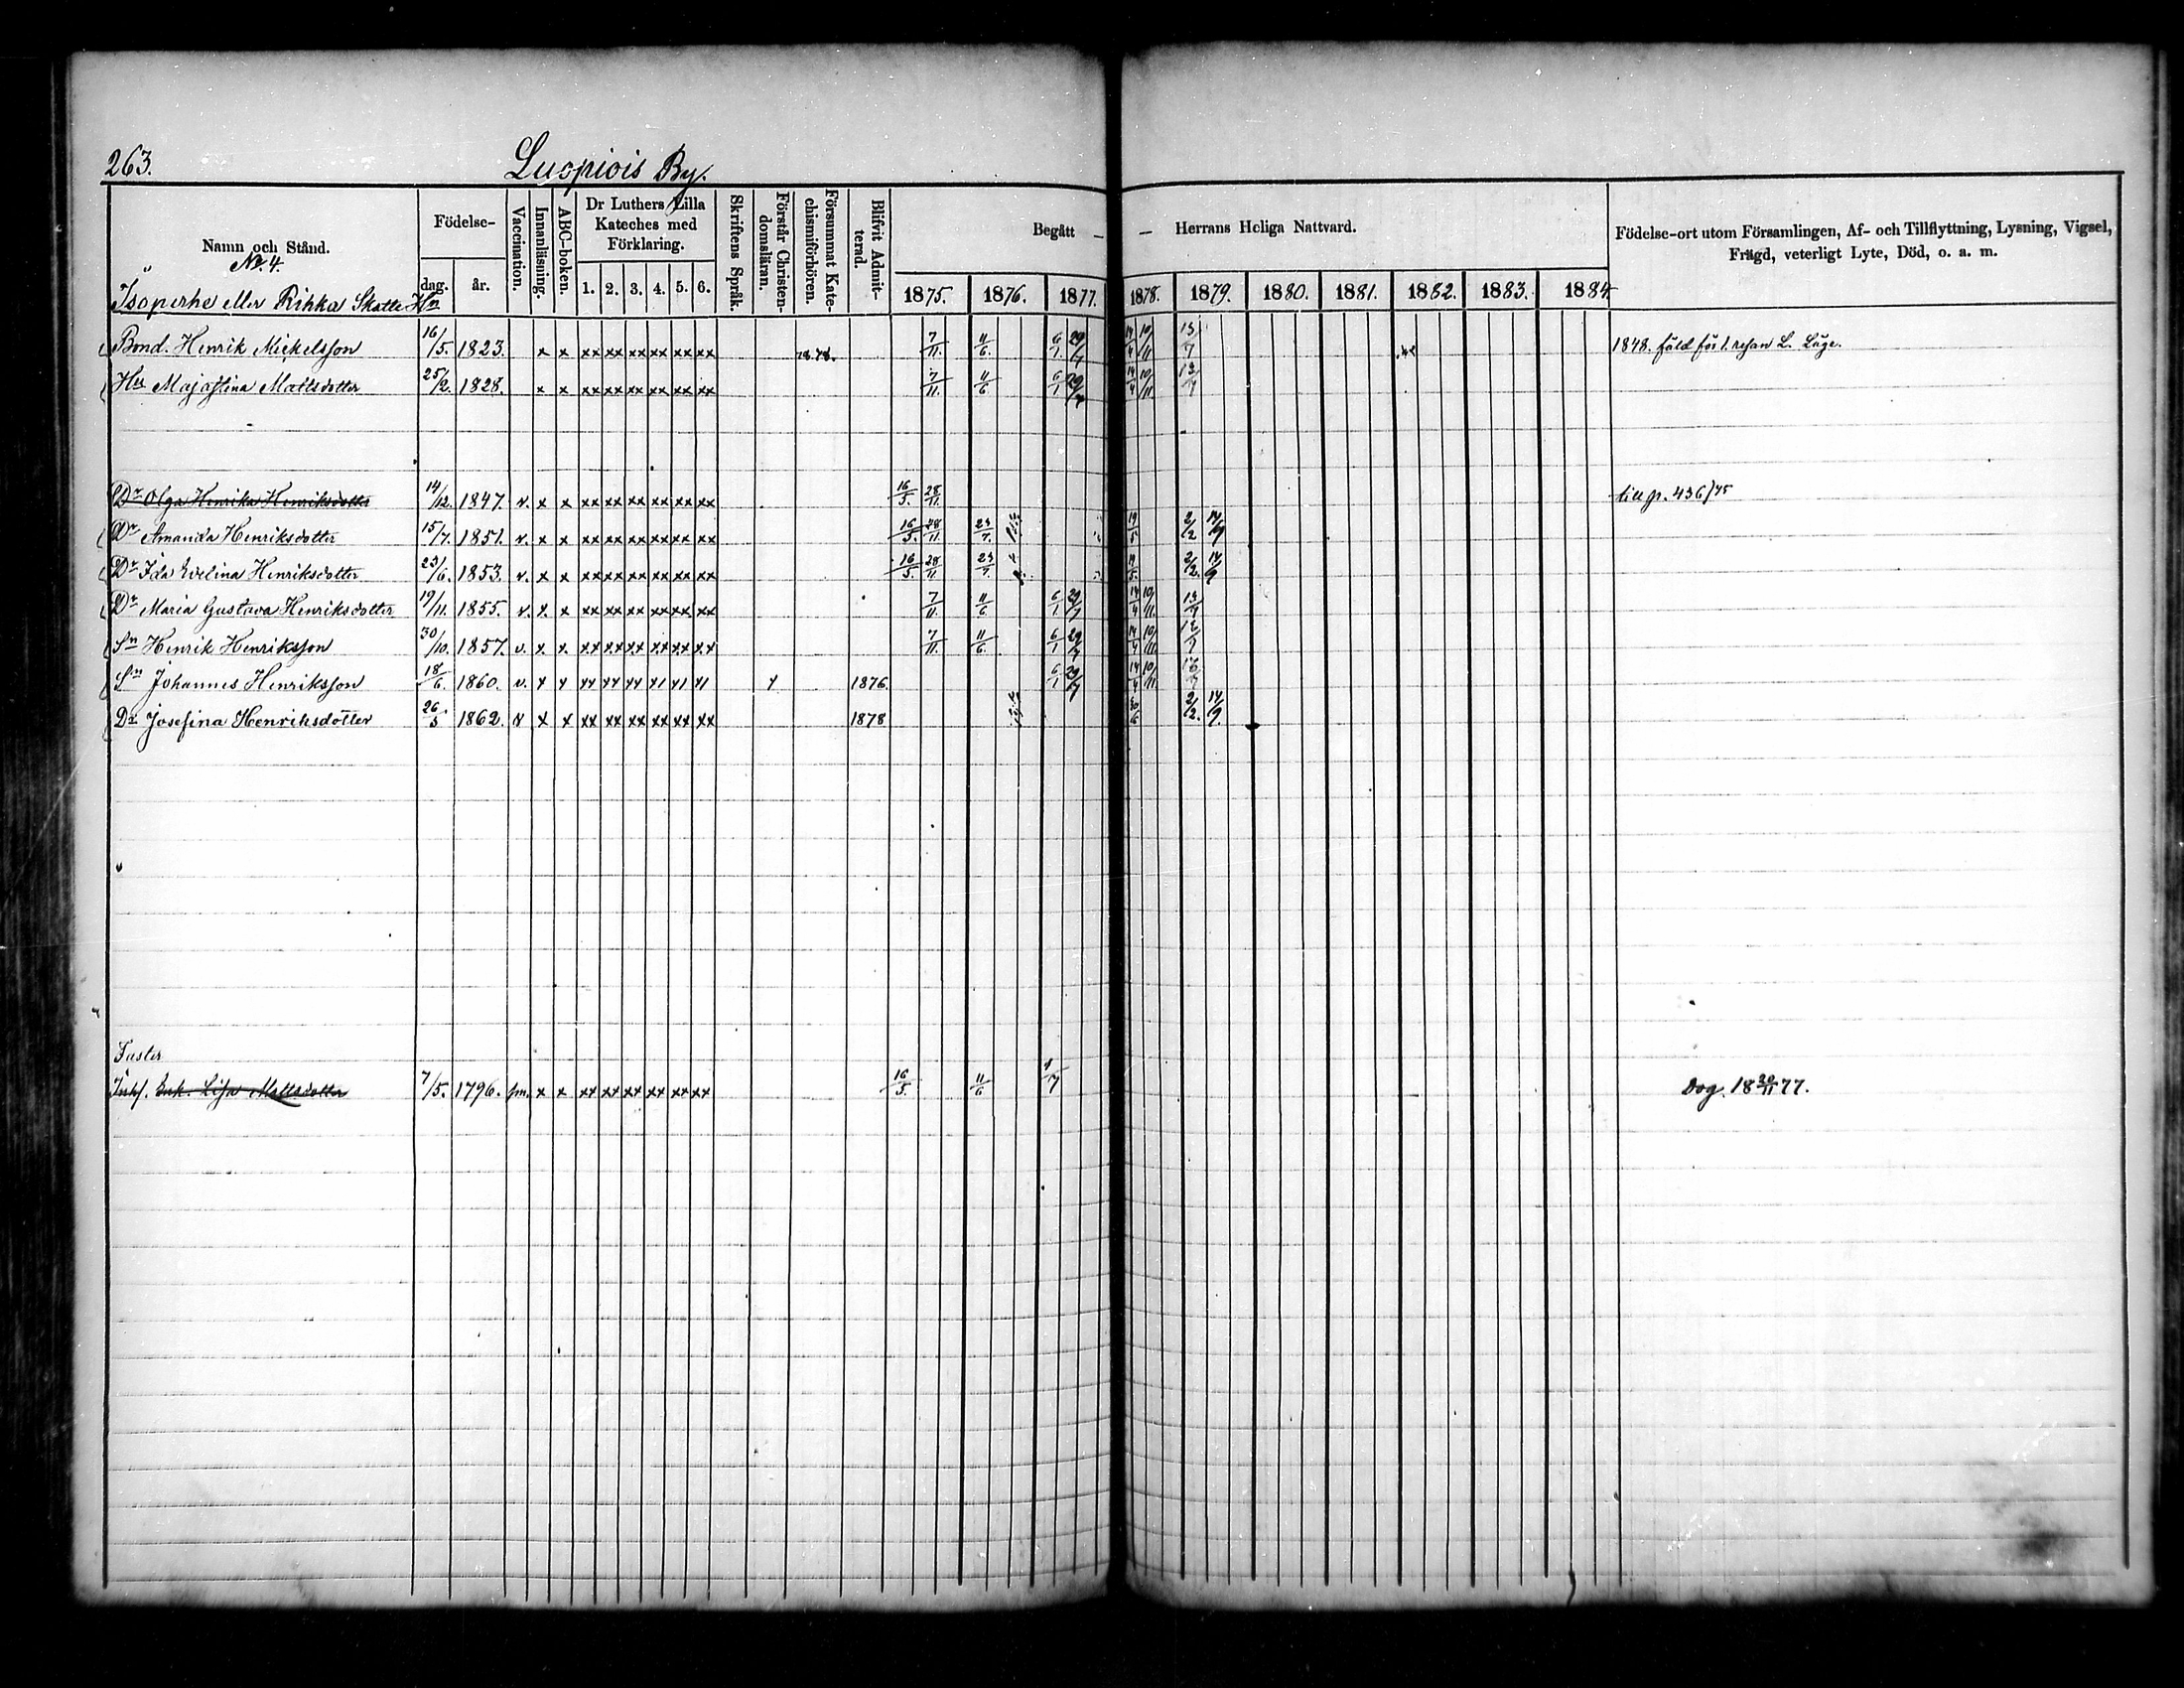 263.
Luopiois By.
Namn och Stånd.
No. 4.
Isoperhe eller Rihka Skatte Hn
Födelse-
dag. år.
Vaccination.
Innanläsning.
ABC-boken.
Dr Luthers Lilla
Kateches med
Förklaring.
1. 2. 3. 4. 5. 6.
Skriftens Språk.
Förstår Christen-
domsläran.
Försummat Kate-
chismiförhören.
Blifvit Admit-
terad.
Begått — — Herrans Heliga Nattvard.
1875. 1876. 1877. 1878. 1879. 1880. 1881. 1882. 1883. 1884.
Födelse-ort utom Församlingen, Af- och Tillflyttning, Lysning, Vigsel,
Frägd, veterligt Lyte, Död, o. a. m.
Bond. Henrik Mickelsson 16/5. 1823. x x xx xx xx xx xx xx 7/11. 11/6. 6/1 29/7 14/4 10/11 13/7 1848. fäld för 1. resan L. Läge.
Hu Majastina Mattsdotter 25/2. 1828. x x xx xx xx xx xx xx 7/11. 11/6 6/1 29/7 14/4 10/11. 13/7
Dr Olga Henrika Henriksdotter 14/12. 1847. v. x x xx xx xx xx xx xx 16/5. 28/11. till p. 436/75
Dr Amanda Henriksdotter 15/7. 1851. v. x x xx xx xx xx xx xx 16/5. 28/11. 23/7. 19/5 2/2 14/9
Dr Ida Evelina Henriksdotter 23/6. 1853. v. x x xx xx xx xx xx xx 16/5. 28/11. 23/7. 19/5. 2/2. 14/9
Dr Maria Gustava Henriksdotter 19/11. 1855. v. x. x xx xx xx xx xx xx 7/11. 11/6 6/1 29/7 14/4 10/11. 13/7
Sn Henrik Henriksson 30/10. 1857. v. x x. xx xx xx xx xx xx 7/11. 11/6. 6/1 29/7 14/4 10/11. 13/7
Sn Johannes Henriksson 18/6. 1860. v. x x xx xx xx x1 x1 x1 x 1876. 6/1 29/7 14/4 10/11. 13/7
Dr Josefina Henriksdotter 26/5 1862. v x x xx xx xx xx xx xx 1878 30/6 2/2. 14/9.
Faster
Inhs. Enk. Lisa Mattsdotter 7/5. 1796. x x xx xx xx xx xx xx 16/5. 11/6 1/7 Dog. 18 30/11 77.